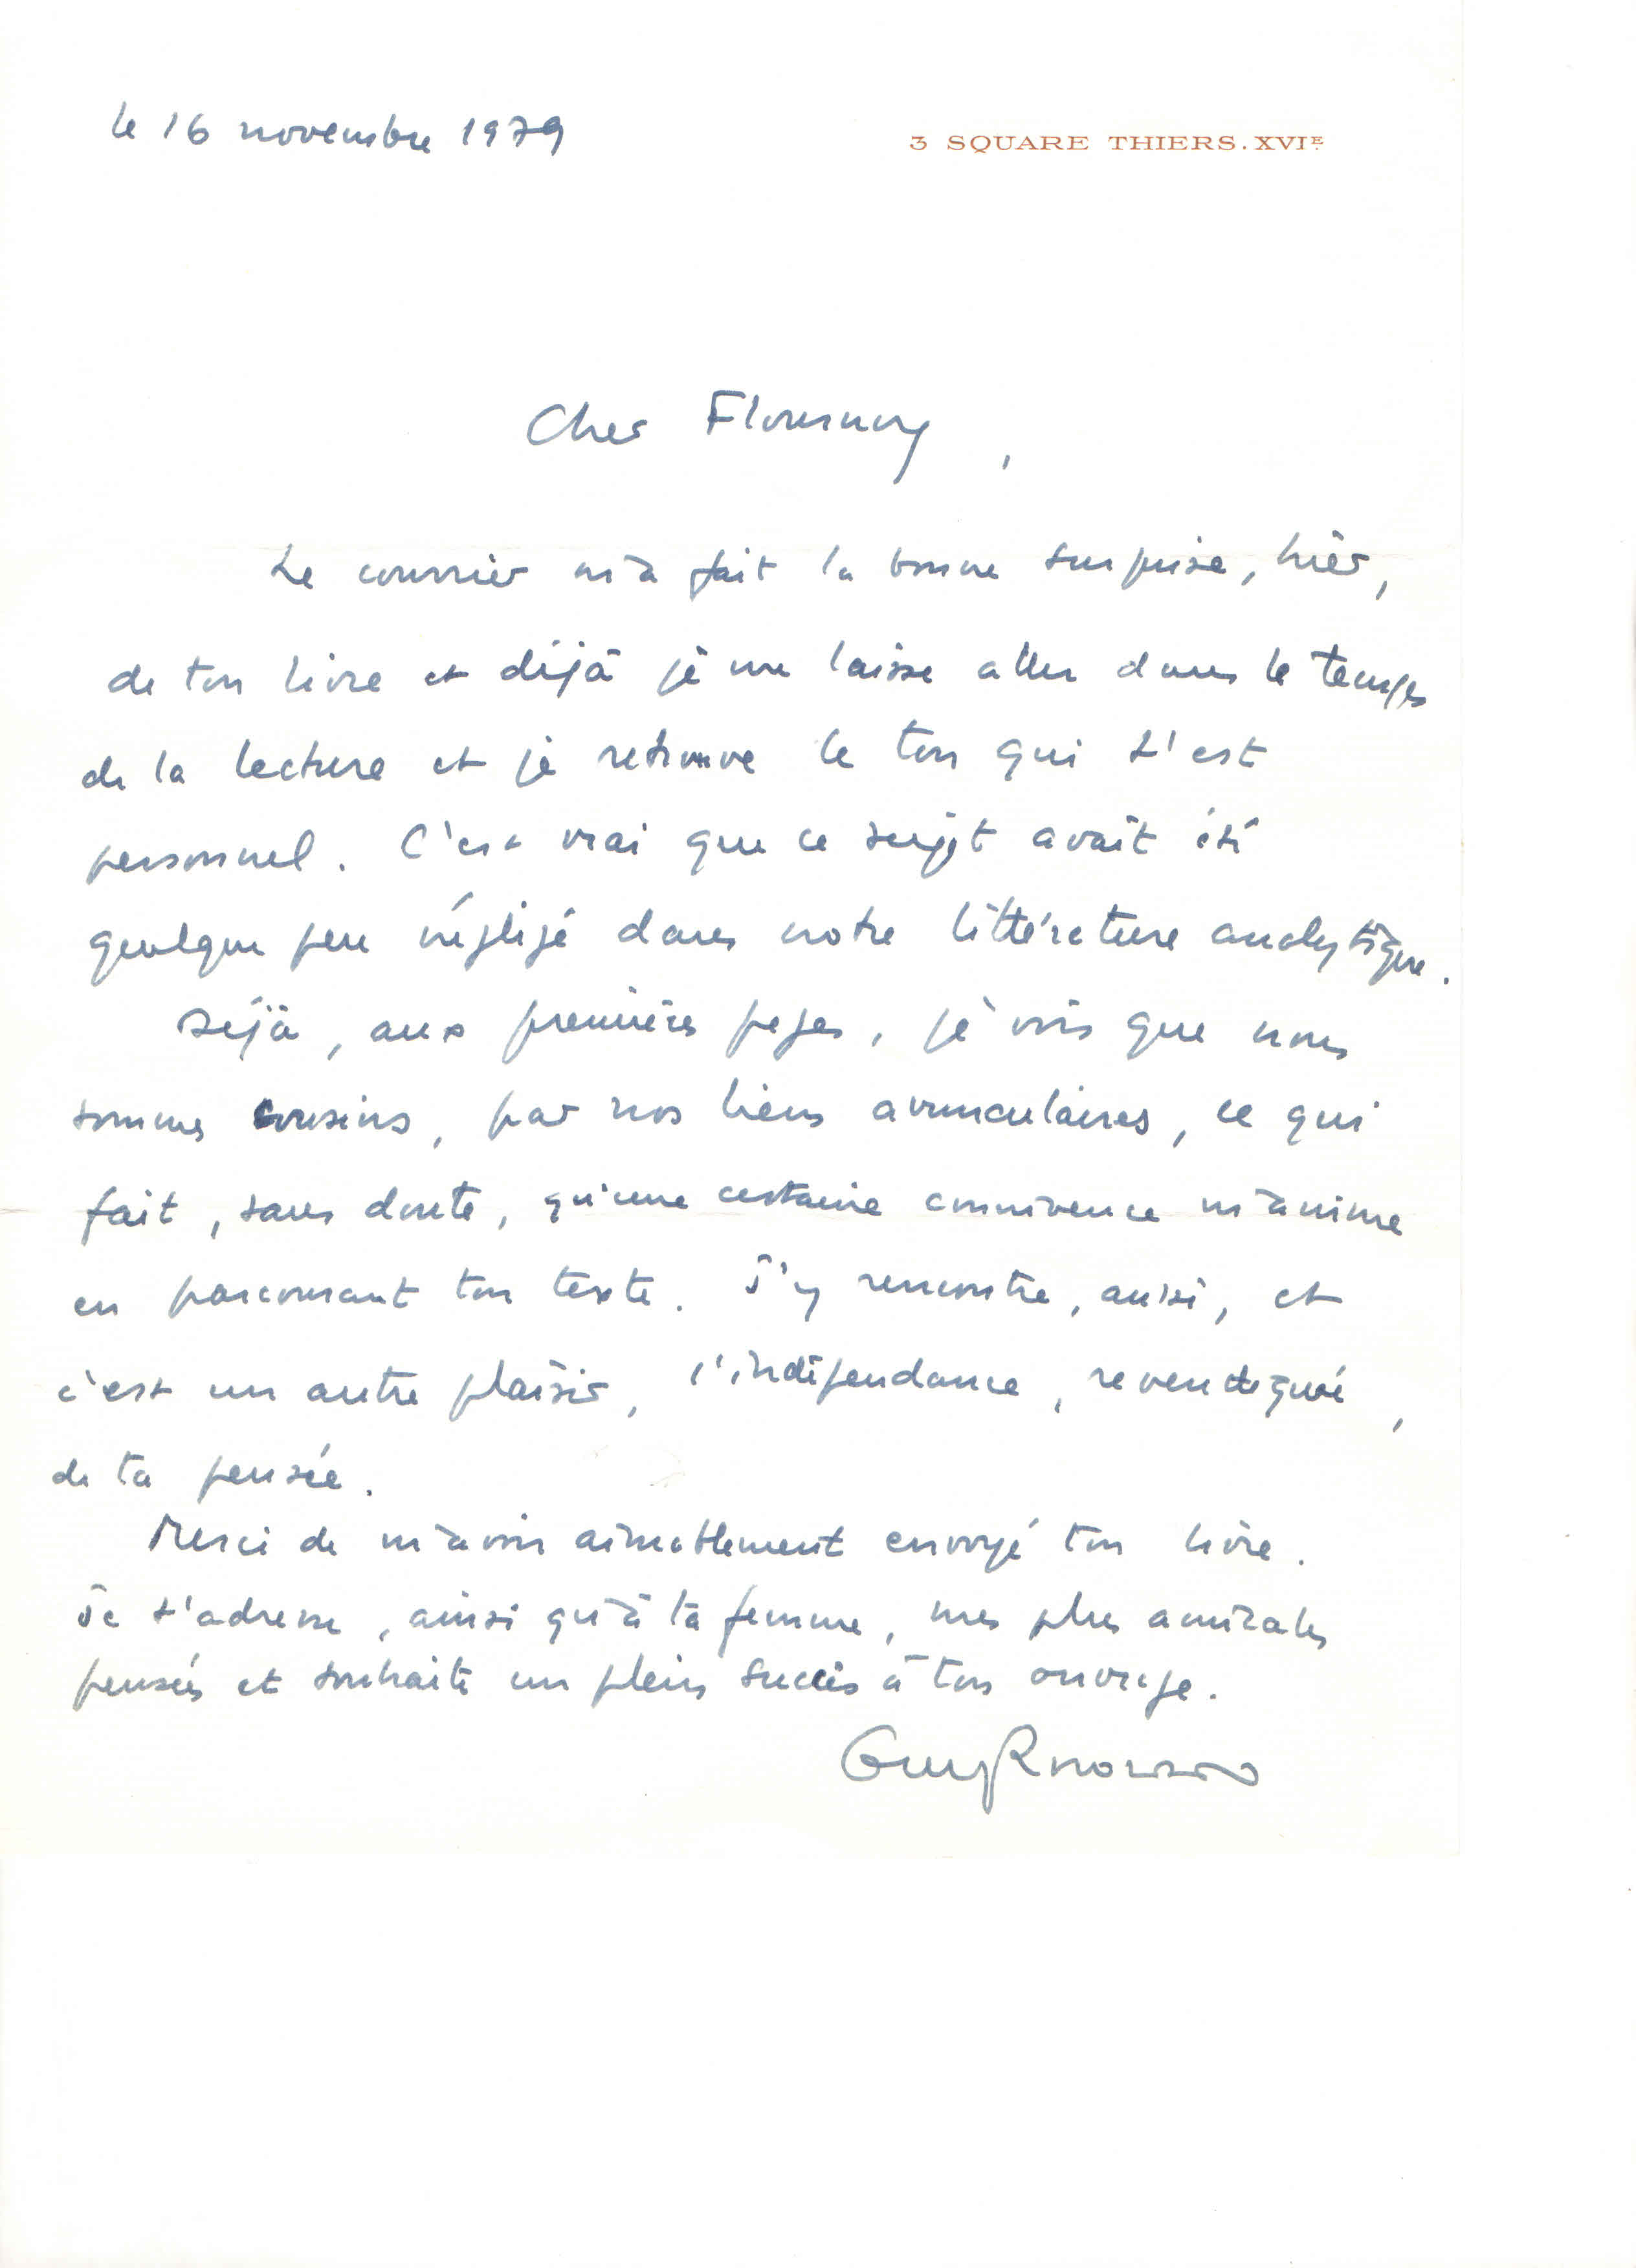 le 16 novembre 1979
3 SQUARE THIERS. XVIE
Cher Flournoy,
Le courrier m'a fait la bonne surprise, hier,
de ton livre et déjà je me laisse aller dans le temps
de la lecture et je retrouve le ton qui t'est
personnel. C'est vrai que ce sujet avait été
quelque peu négligé dans notre littérature analytique.
Déjà, aux premières pages, je vois que nous
sommes cousins, par nos liens avunculaires, ce qui
fait, sans doute, qu'une certaine connivence m'anime
en parcourant ton texte. J'y rencontre, aussi, et
c'est un autre plaisir, l'indépendance, revendiquée,
de ta pensée.
Merci de m'avoir aimablement envoyé ton livre.
Je t'adresse, ainsi qu'à ta femme, mes plus amicales
pensées et souhaite un plein succès à ton ouvrage.
Guy Rosolato